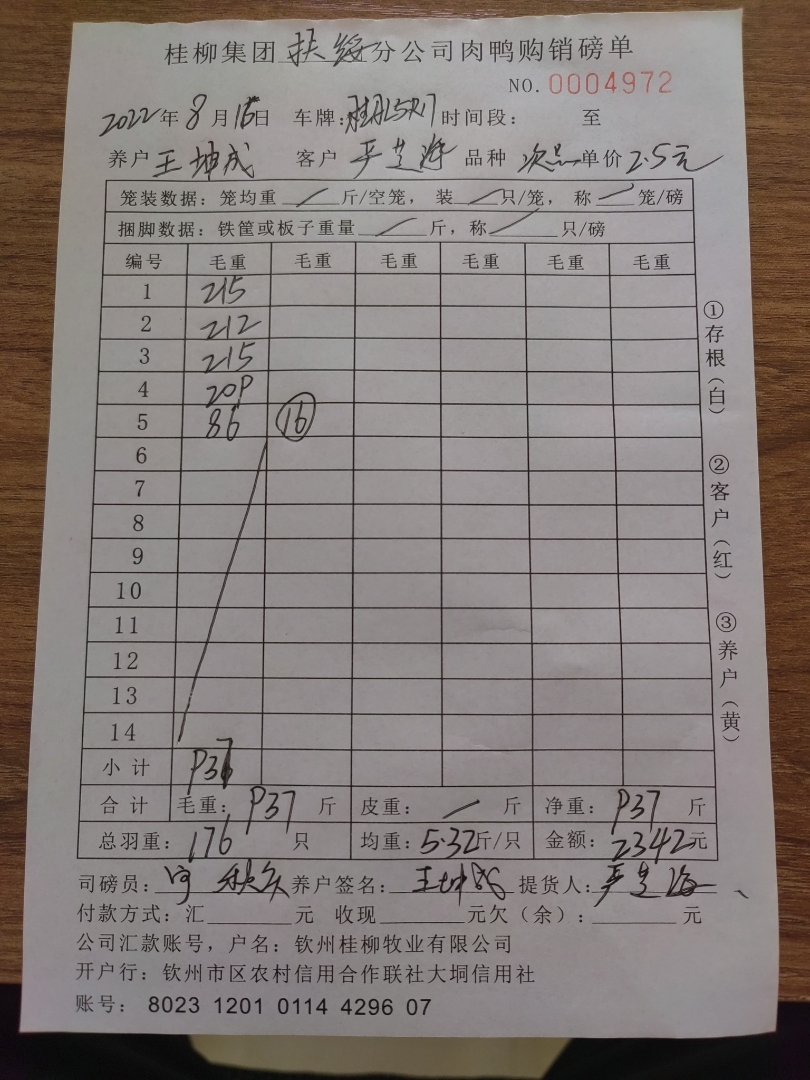 桂柳集团扶绥分公司肉鸭购销磅单
NO.0004972
2022年8月16日 车牌: 时间段: 至
养户王坤成 客户严芝海 品种次品单价2.5元
笼装数据:笼均重/斤/空笼,装/只/笼,称/笼/磅
捆脚数据:铁筐或板子重量/斤,称/只/磅
编号 毛重 毛重 毛重 毛重 毛重 毛重
1 215
2 212
3 215
4 209
5 86 16
6
7
8
9
10
11
12
13
14
小计 937
合计 毛重:937斤 皮重:/斤 净重:937斤
总羽重:176只 均重:5.32斤/只 金额:2342元
司磅员: 养户签名:王坤成 提货人:严芝海
付款方式:汇 元 收现 元欠(余): 元
公司汇款账号,户名:钦州桂柳牧业有限公司
开户行:钦州市区农村信用合作联社大垌信用社
账号:8023 1201 0114 4296 07
①存根(白)
②客户(红)
③养户(黄)